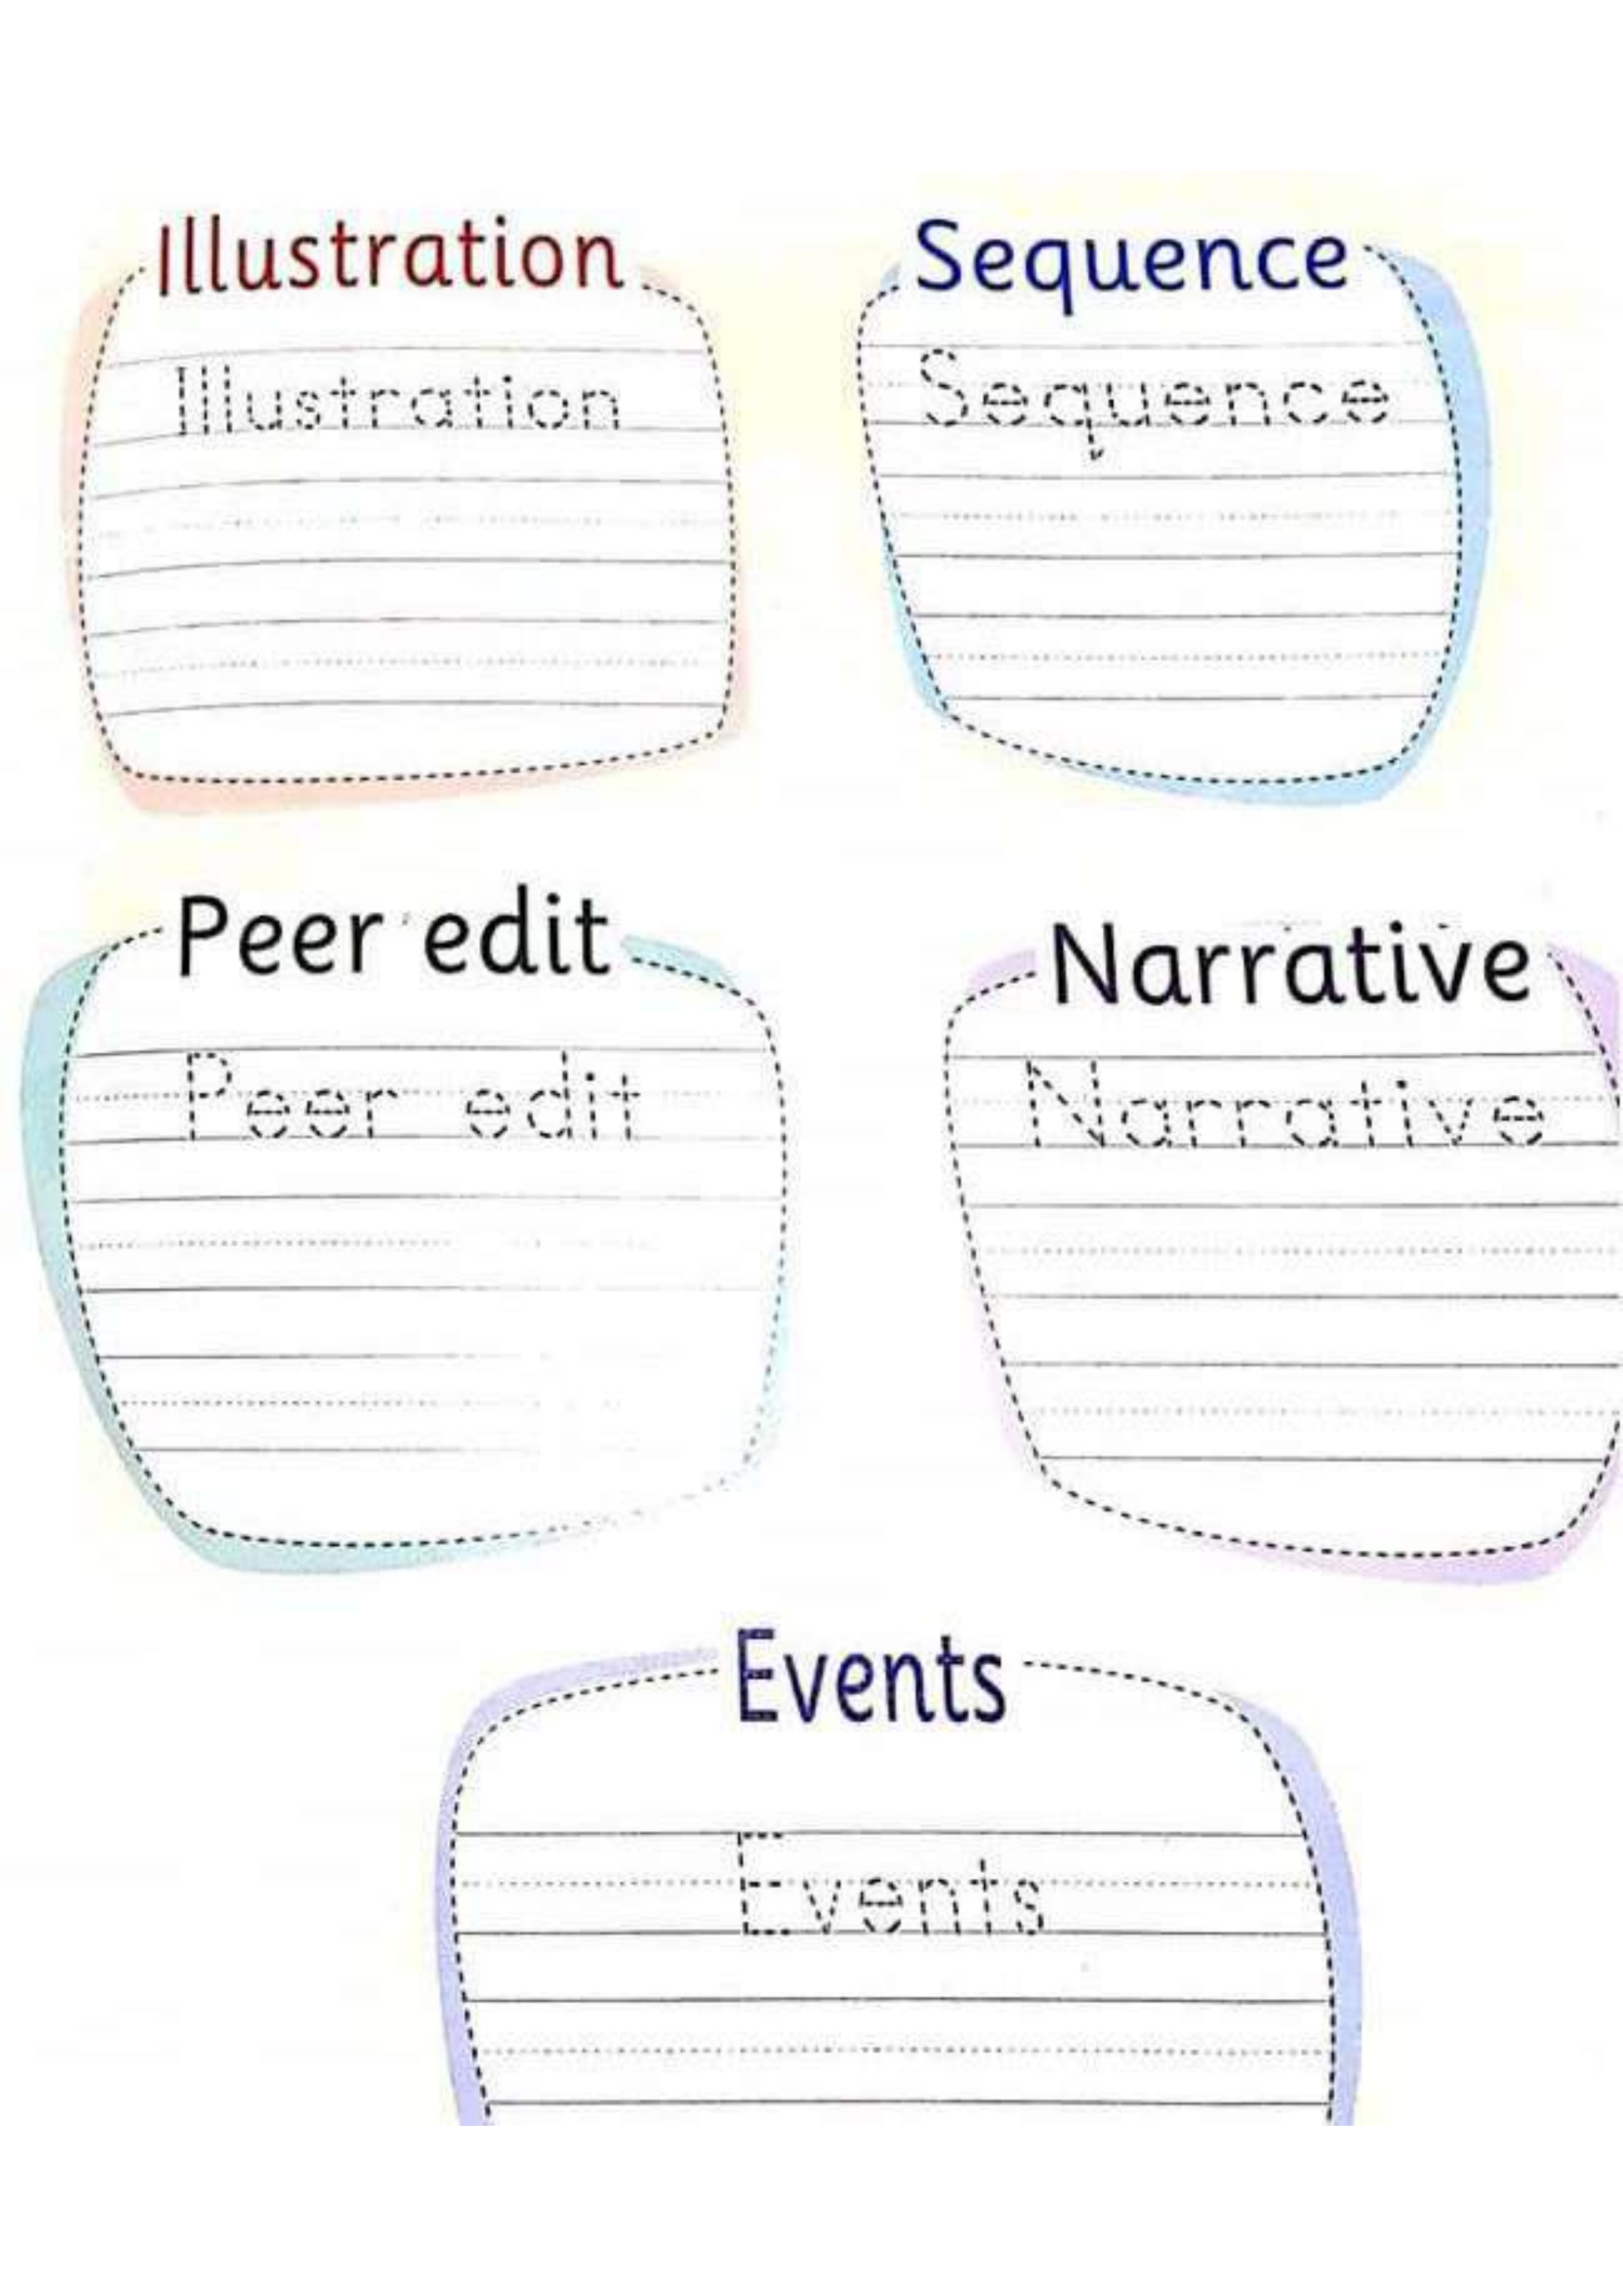 Illustration
Illustration
Sequence
Sequence
Peer edit
Peer edit
Narrative
Narrative
Events
Events